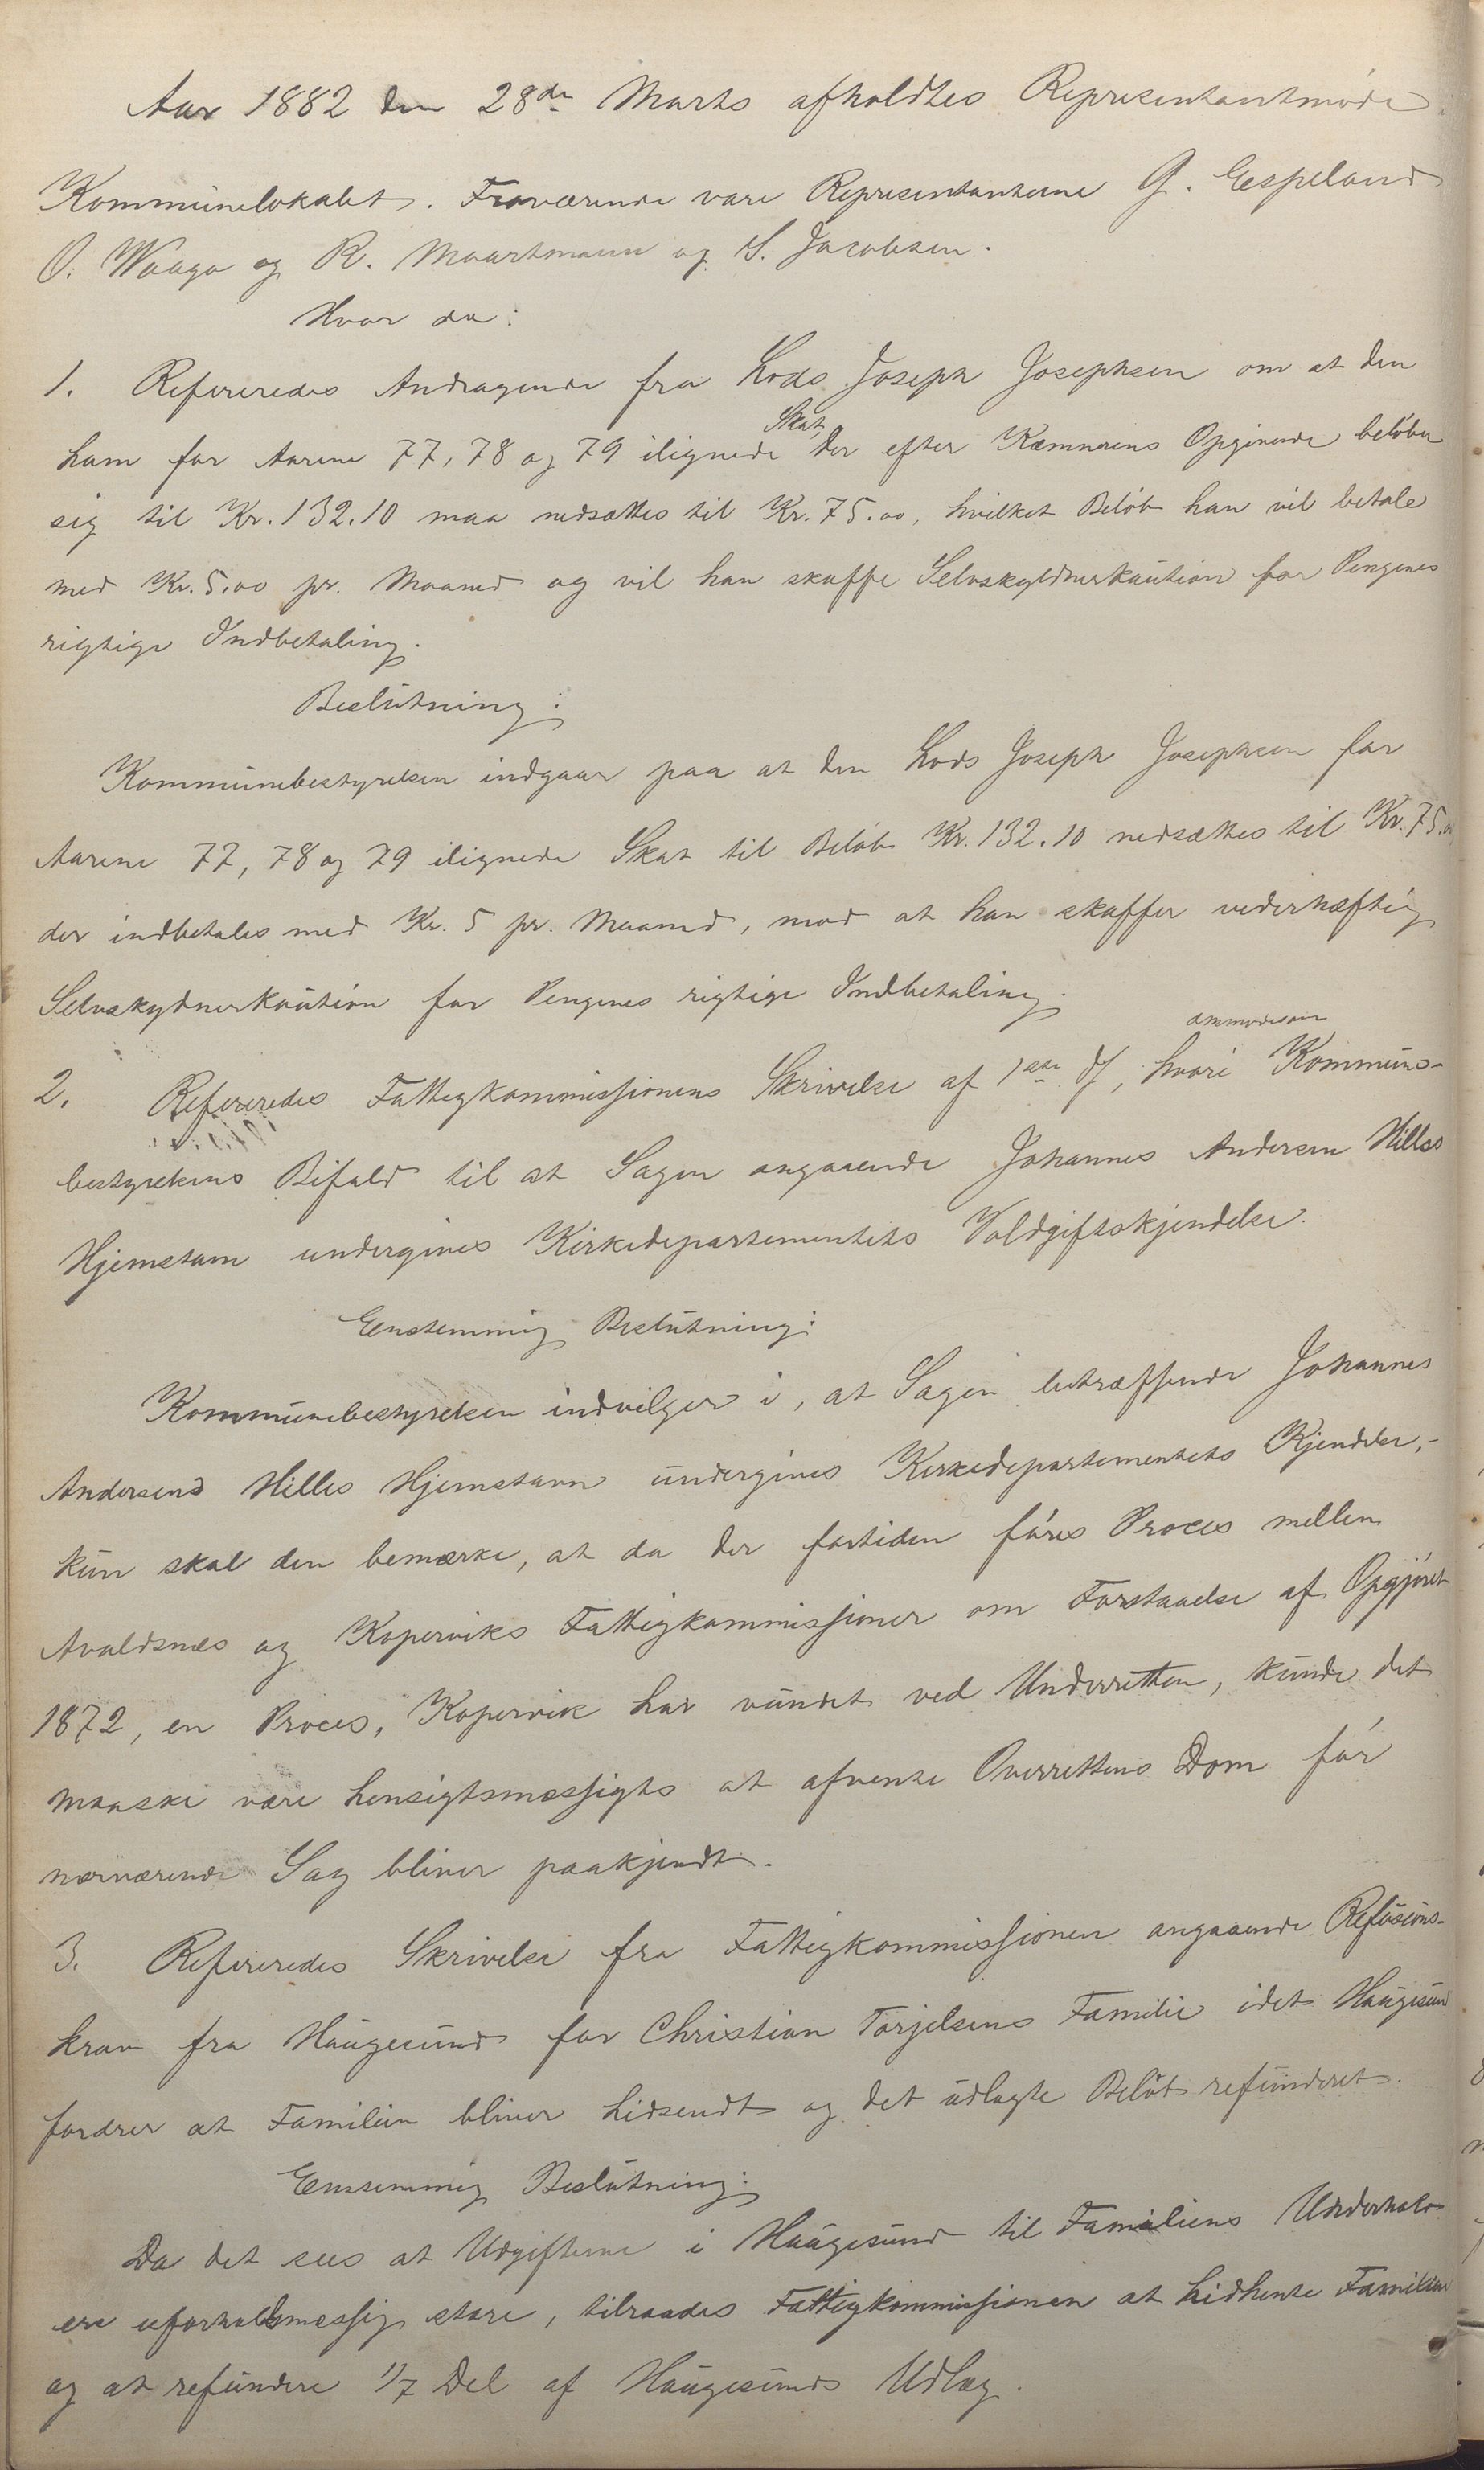 Aar 1882 den 28de Marts afholdtes Representantmøde
Kommunelokalet. Fraværende vare Representanterne G. Eespeland
O. Waage og R. Maartmann og S. Jacobsen.
Hvor da:
1. Refereredes Andragende fra Lods Joseph Josephsen om at den
ham for Aarene 77, 78 og 79 ilignede Skat, der efter Kæmnerens Opgivende beløber
sig til Kr. 132.10 maa nedsættes til Kr. 75.00, hvilket Beløb han vil betale
med Kr. 5.00 pr. Maaned og vil han skaffe Selvskyldnerkaution for Pengenes
rigtige Indbetaling.
Beslutning:
Kommunebestyrelsen indgaar paa at den Lods Joseph Josephsen for
Aarene 77, 78 og 79 ilignede Skat til Beløb Kr. 132.10 nedsættes til Kr. 75.00
der indbetales med Kr. 5 pr. Maaned, mod at han skaffer vederhæftig
Selvskydnerkaution for Pengenes rigtige Indbetaling.
2. Refereredes Fattigkommissionens Skrivelse af 1ste ds, hvori ammodes om Kommune-
bestyrelsens Bifald til at Sagen angaaende Johannes Andersen Hilles
Hjemstam undergives Kirkedepartementets Voldgiftskjendelse.
Eenstemmig Beslutning:
Kommunebestyrelsen indvilger i, at Sagen betræffende Johannes
Andersens Hilles Hjemstavn undergives Kirkedepartementets Kjendelse,-
kun skal den bemærke, at da der fortiden føres Proces mellem
Avaldsnes og Koperviks Fattigkommissioner om Forstaaelse af Opgjøret
1872, en Proces, Kopervik har vundet ved Underretten, kunde det
maaske være hensigtsmæssigts at afvente Overrettens Dom før
nærværende Sag bliver paakjendt.
3. Refereredes Skrivelse fra Fattigkommissionen angaaende Refusions-
krav fra Haugesund for Christian Torjelsens Familie idet Haugesund
fordrer at Familien bliver hidsendt og det udlagte Beløb refunderet.
Eenstemmig Beslutning:
Da det sees at Udgifterne i Haugesund til Familiens Underhold
ere uforholdsmessig store, tilraades Fattigkommissionen at hidhente Familien
og at refundere 1/7 Del af Haugesunds Udlæg.